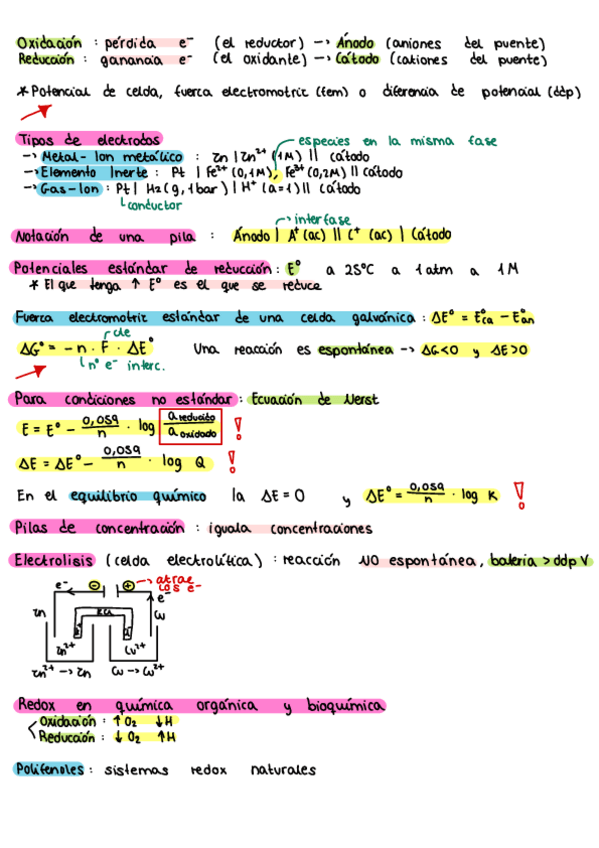 Oxidación : pérdida e⁻ (el reductor) → Ánodo (aniones del puente)
Reducción : ganancia e⁻ (el oxidante) → Cátodo (cationes del puente)
* Potencial de celda, fuerza electromotriz (fem) o diferencia de potencial (ddp)
Tipos de electrodos
especies en la misma fase
→ Metal-Ion metálico : Zn | Zn²⁺ (1M) || cátodo
→ Elemento Inerte : Pt | Fe²⁺ (0,1M), Fe³⁺ (0,2M) || cátodo
→ Gas-Ion : Pt | H₂ (g, 1bar) | H⁺ (a=1) || cátodo
conductor
interfase
Notación de una pila : Ánodo | A⁺ (ac) || C⁺ (ac) | Cátodo
Potenciales estándar de reducción : E° a 25°C a 1 atm a 1 M
* El que tenga ↑ E° es el que se reduce
Fuerza electromotriz estándar de una celda galvánica : ΔE° = E°ca − E°an
cte
ΔG° = − n · F · ΔE° Una reacción es espontánea → ΔG<0 y ΔE>0
n° e⁻ interc.
Para condiciones no estándar : Ecuación de Nerst
E = E° − 0,059/n · log a reducido/a oxidado !
ΔE = ΔE° − 0,059/n · log Q !
En el equilibrio químico la ΔE = 0 y ΔE° = 0,059/n · log K !
Pilas de concentración : iguala concentraciones
Electrolisis (celda electrolítica) : reacción NO espontánea, batería > ddp V
e⁻ − + → atrae los e⁻
e⁻
Zn KCl Cu
Zn²⁺ Cu²⁺
Zn²⁺ → Zn Cu → Cu²⁺
Redox en química orgánica y bioquímica
Oxidación : ↑ O₂ ↓ H
Reducción : ↓ O₂ ↑ H
Polifenoles : sistemas redox naturales